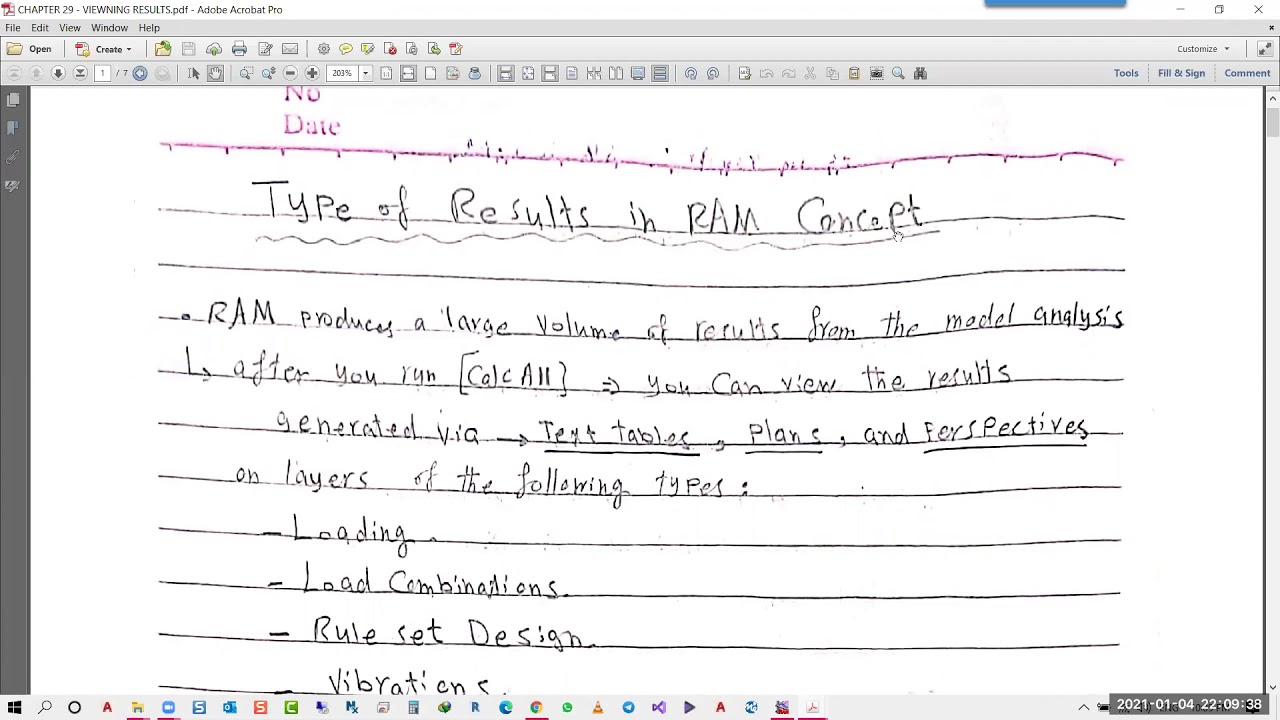 CHAPTER 29 - VIEWNING RESULTS.pdf - Adobe Acrobat Pro
File Edit View Window Help
Open Create Customize
1 / 7 203% Tools Fill & Sign Comment
No
Date
Type of Results in RAM Concept
• RAM produces a large volume of results from the model analysis
↳ after you run [Calc All] ⇒ you can view the results
generated via → Text tables, Plans, and Perspectives
on layers of the following types:
- Loading.
- Load Combinations.
- Rule set Design.
- Vibrations.
2021-01-04 22:09:38